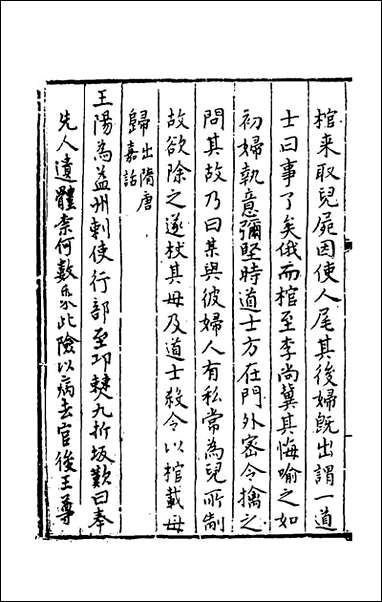 棺来取兒屍因使人尾其後婦既出謂一道
士曰事了矣俄而棺至李尚冀其悔喻之如
初婦執意彌堅時道士方在門外密令擒之
問其故乃曰某與彼婦人有私常為兒所制
故欲除之遂杖其母及道士殺令以棺載母
歸出隋唐嘉話
王陽為益州刺使行部至邛僰九折坂歎曰奉
先人遺體柰何數乘此險以病去官後王尊